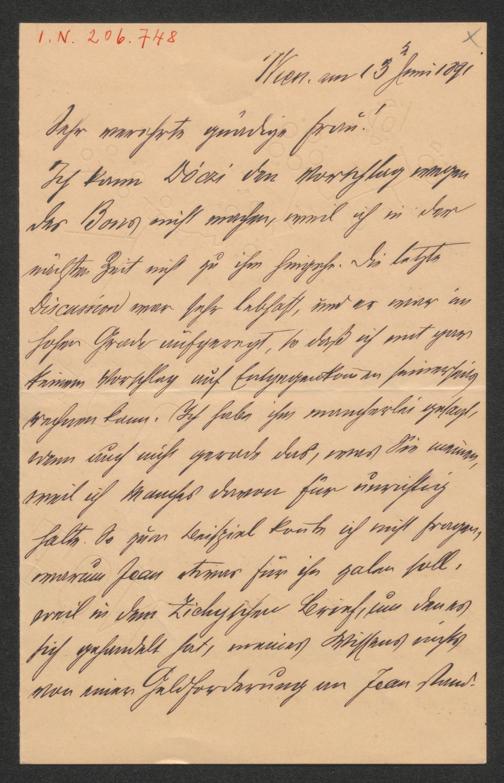 I. N. 206.748
Wien. am 13t Juni 1891
Sehr verehrte gnädige Frau!
Ich kann Dóczi den Vorschlag wegen
des Bons nicht machen, weil ich in der
nächsten Zeit nicht zu ihm hingehe. Die letzte
Discussion war sehr lebhaft, und er war in
hohem Grade aufgeregt, so daß ich mit gar
keinem Vorschlag auf Entgegenkommen seinerseits
rechnen kann. Ich habe ihm mancherlei gesagt,
wenn auch nicht gerade das, was Sie meinen,
weil ich Manches davon für unrichtig
halte. So zum Beispiel konnte ich nicht fragen,
warum Jean etwas für ihn zalen soll,
weil in dem Zichy'schen Brief, um den es
sich gehandelt hat, meines Wissens nichts
von einer Geldforderung an Jean stand.